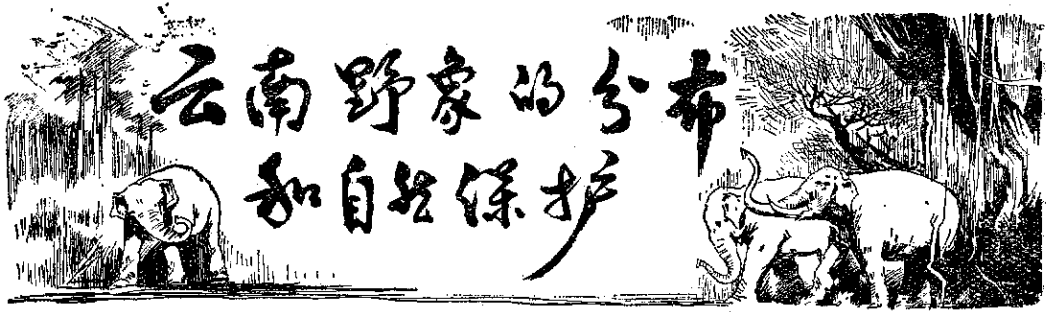 云南野象的分布
和自然保护